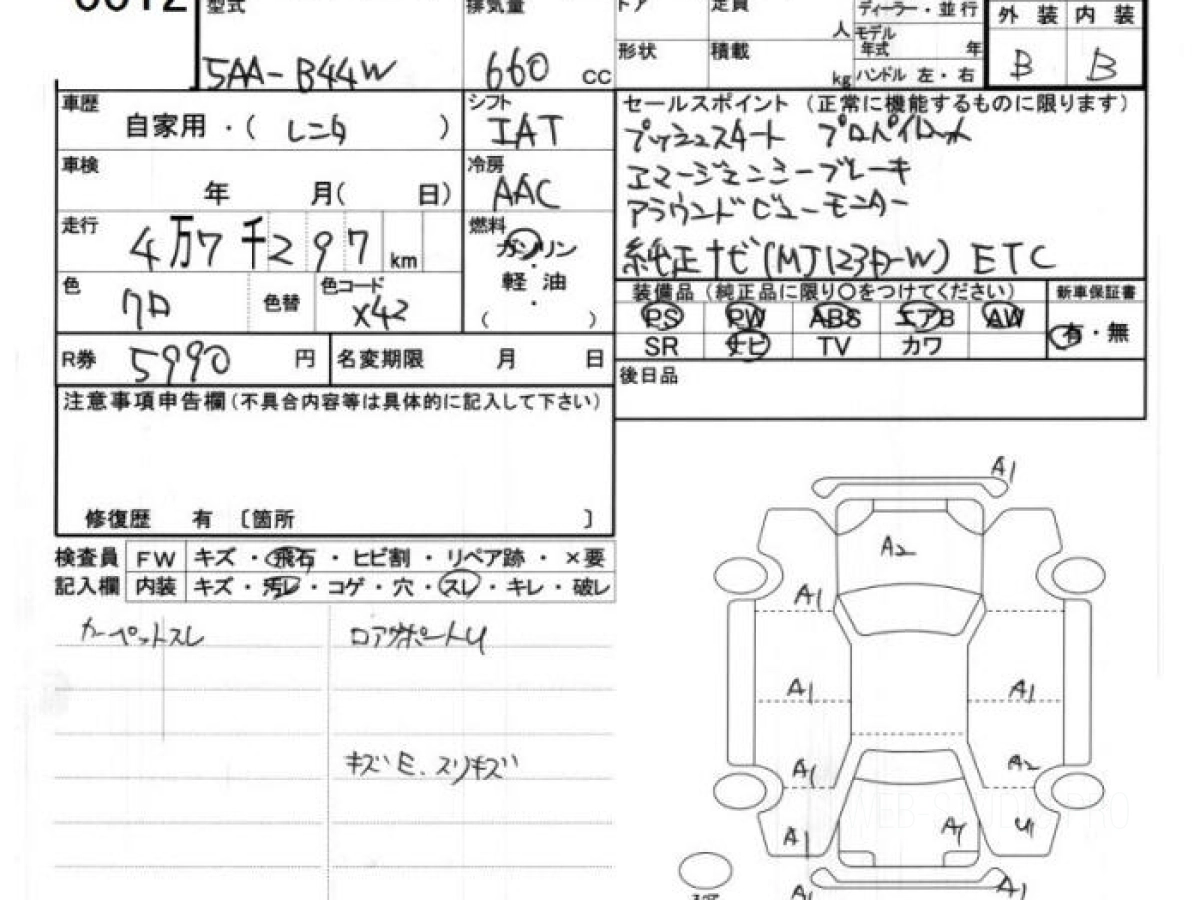 型式 排気量 ドア 定員 人 ディーラー・並行 外装 内装
モデル年式 年
形状 積載 kg ハンドル 左・右
5AA-B44W 660 cc B B
車歴 自家用・( レンタ ) シフト IAT
セールスポイント (正常に機能するものに限ります)
プッシュスタート プロパイロット
エマージェンシーブレーキ
アラウンドビューモニター
純正ナビ(MJ123D-W) ETC
車検 年 月( 日) 冷房 AAC
走行 4万7千297km 燃料 ガソリン・軽油・( )
色 クロ 色替 色コード X42
装備品 (純正品に限り○をつけてください) 新車保証書
PS PW ABS エアB AW 有・無
SR ナビ TV カワ
R券 5990 円 名変期限 月 日
後日品
注意事項申告欄(不具合内容等は具体的に記入して下さい)
修復歴 有 〔箇所 〕
検査員 FW キズ・飛石・ヒビ割・リペア跡・×要
記入欄 内装 キズ・汚レ・コゲ・穴・スレ・キレ・破レ
カーペットスレ ロアサポートU
キズE、スリキズ
A1
A2
A1
A1 A1
A1 A2
A1 A1 U1
A1 A1
WEB-ST